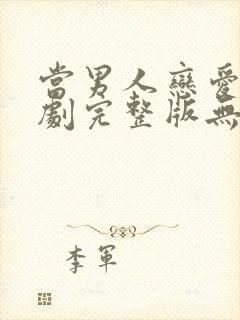 當男人戀愛
劇完整版無
李軍